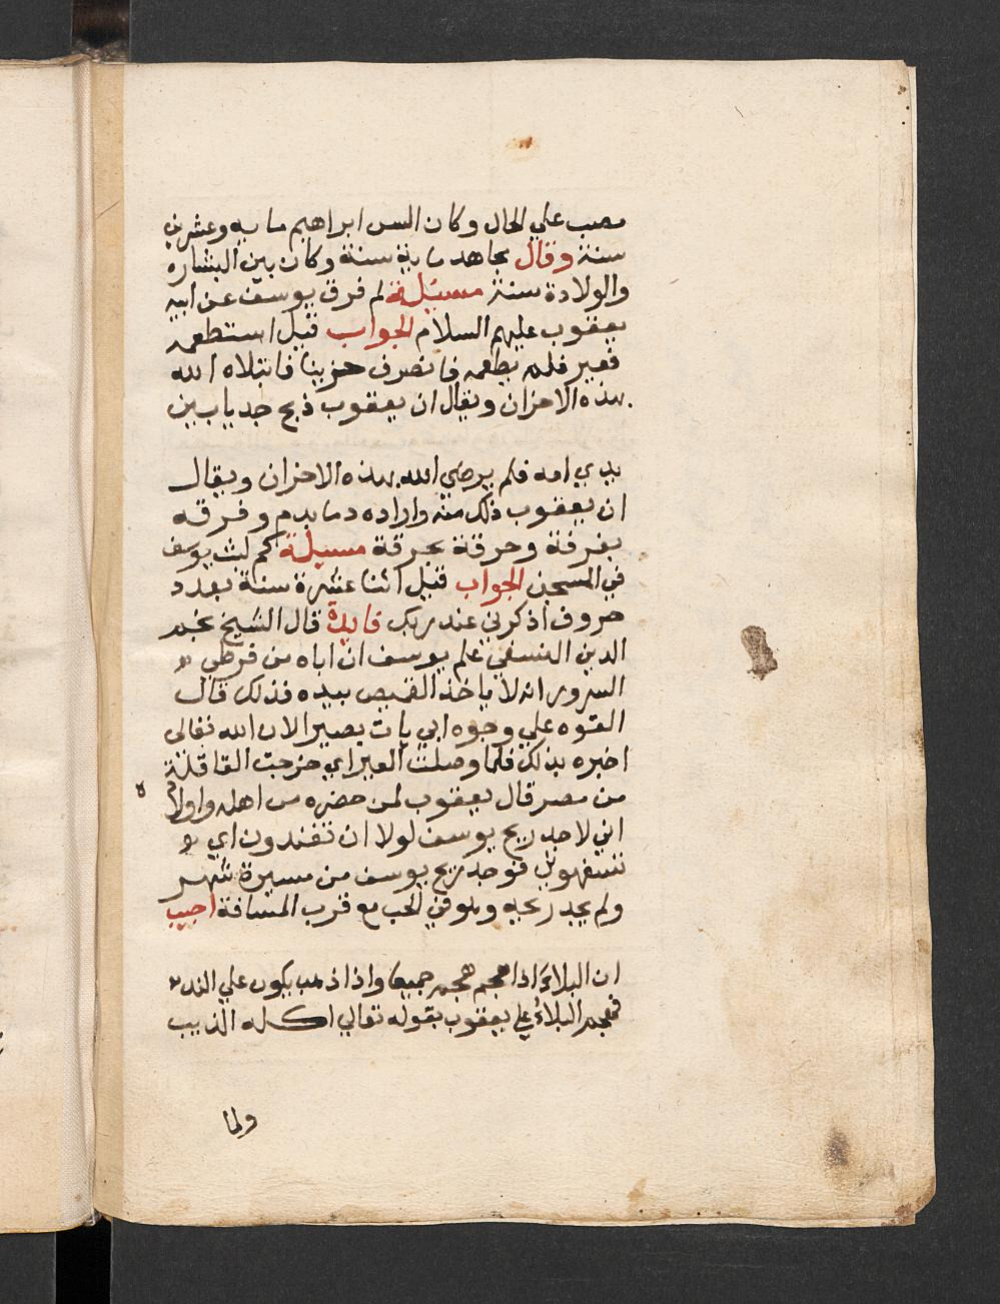 نصب علي الحال وكان السن ابراهيم مايه وعشرين
سنة وقال مجاهد ماية سنة وكان بين البشاره
والولادة سنة مسيلة لم فرق يوسف عن ابيه
يعقوب عليهم السلام الجواب قيل استطعمه
فقير فلم يطعمه فانصرف حزينا فابتلاه الله
بهذه الاحزان ويقال ان يعقوب ذبح جديا بين
يدي امه فلم يرضي الله بهذه الاحزان ويقال
ان يعقوب ذلك منه واراده دما بدم وفرقه
بفرقة وحرقة بحرقة مسيلة كم لبث يوسف
في السجن الجواب قيل اثنا عشرة سنة بعدد
حروف اذكرني عند ربك فايدة قال الشيخ نجم
الدين النسفي علم يوسف ان اباه من فرطي
السرور انه لا ياخذ القميص بيده فذلك قال
القوه علي وجوه ابي يات بصيرا لان الله تعالى
اخبره بذلك فلما وصلت العير اي خرجت القافلة
من مصر قال يعقوب لمن حضره من اهله واولاده
اني لاجد ريح يوسف لولا ان تفندون اي
تسفهوني فوجد ريح يوسف من مسيرة شهر
ولم يجد ريحيه وهو في الجب مع قرب المسافة اجيب
ان البلاء اذا هجم هجم جميعا واذا ذهب يكون علي التد
فهجم البلاء علي يعقوب بقوله تعالي اكله الذيب
ولما